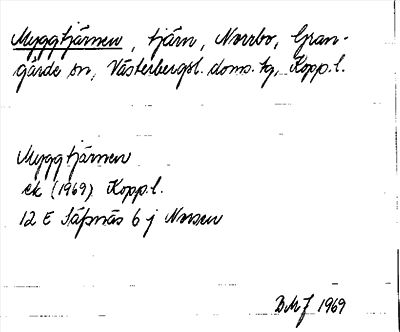 Myggtjärnen, tjärn, Norrbo, Gran-
gärde sn, Västerbergsl. doms. tg, Kopp. l.
Myggtjärnen
ek (1969) Kopp. l.
12 E Säfsnäs 6 j Norsen
BMJ 1969